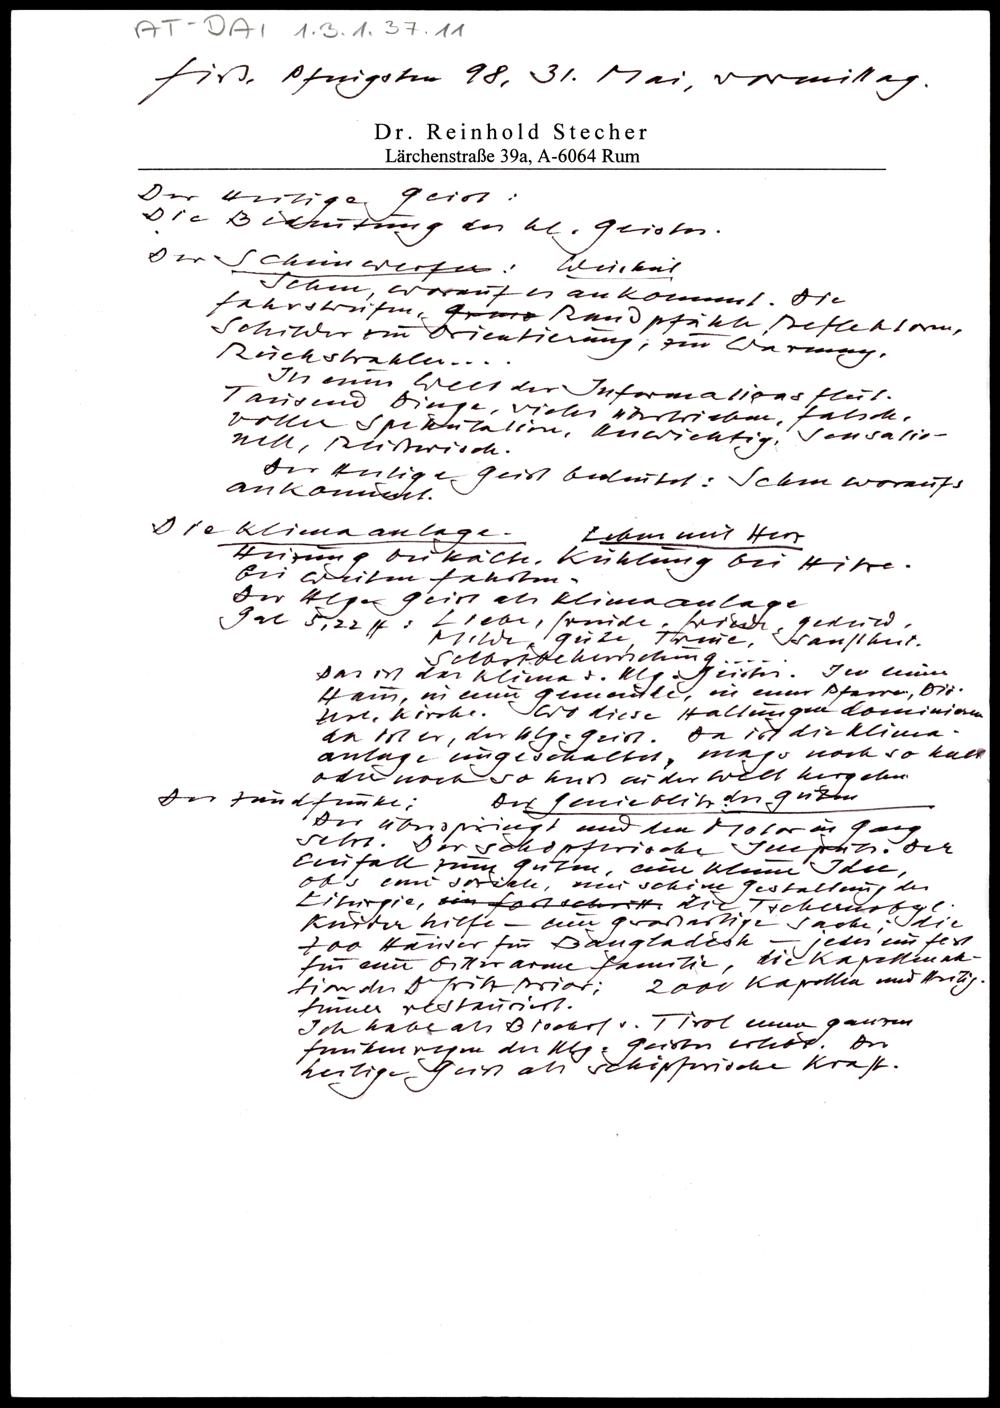 AT-DAI 1.3.1.37.11
Fiß, Pfingsten 98, 31. Mai, vormittag.
Dr. Reinhold Stecher
Lärchenstraße 39a, A-6064 Rum
Der Heilige Geist:
Die Bedeutung des hl. Geistes.
Der Scheinwerfer: Weisheit
Sehen, worauf es ankommt. Die
Fahrstreifen, Randpfähle, Reflektoren,
Schilder zur Orientierung, zur Warnung,
Rückstrahler....
In einer Welt der Informationsflut.
Tausend Dinge, vieles übertrieben, falsch,
voller Spekulation, Unwichtig, Sensatio-
nell, Reißerisch.
Der Heilige Geist bedeutet: Sehen worauf's
ankommt.
Die Klimaanlage. Leben mit Herz
Heizung bei Kälte, Kühlung bei Hitze.
bei weiten Fahrten.
Der Hlge Geist als Klimaanlage
Gal 5,22 ff: Liebe, Freude, Friede, Geduld,
Milde, Güte, Treue, Sanftheit.
Selbstbeherrschung.....
Das ist das Klima d. Hlg. Geistes. In einem
Haus, in einer Gemeinde, in einer Pfarre, Diö-
zese, Kirche. Wo diese Haltungen dominieren
da ist er, der Hlg. Geist. Da ist die Klima-
anlage eingeschaltet, mags noch so kalt
oder noch so heiß in der Welt hergehen
Der Zündfunke: Der Genieblitz des Guten
Der überspringt und den Motor in Gang
setzt. Der schöpferische Impuls. Der
Einfall zum Guten, eine kleine Idee,
ob's eine soziale, eine schöne Gestaltung der
Liturgie, ein Fortschritt. die Tschernobyl-
Kinderhilfe – eine großartige Sache; die
700 Häuser für Bangladesh – jedes ein Fest
für eine bitterarme Familie, die Kapellenak-
tion des Dr Fritz Prior; 2000 Kapellen und Heilig-
tümer restauriert.
Ich habe als Bischof v. Tirol einen ganzen
Funkenregen des Hlg. Geistes erlebt. Der
heilige Geist als schöpferische Kraft.